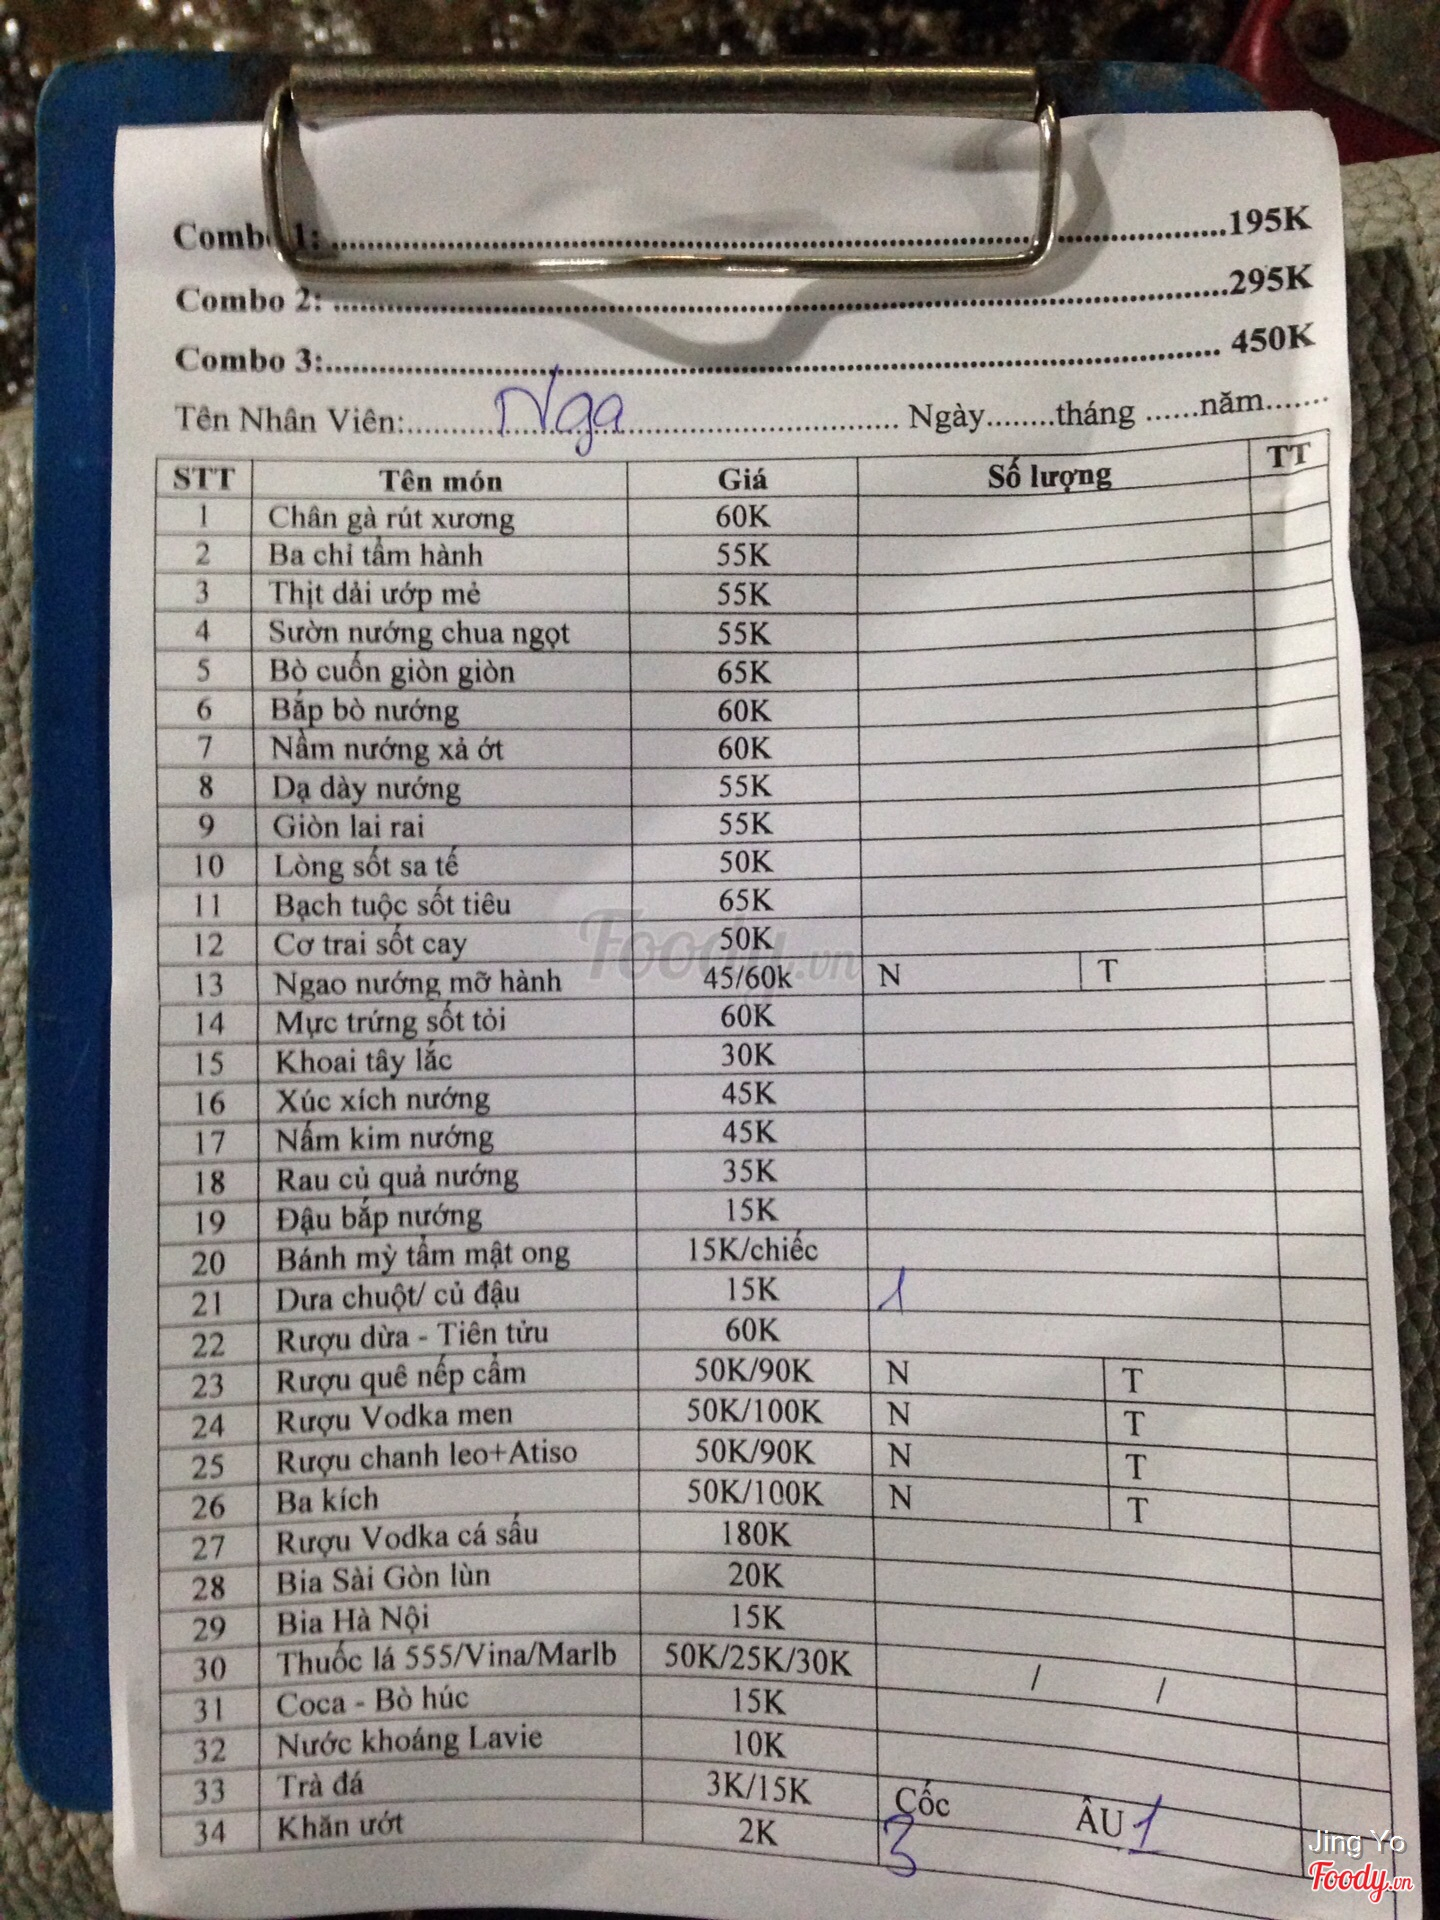 Combo 1:..........195K
Combo 2: ..........295K
Combo 3:.......... 450K
Tên Nhân Viên:.....Nga..... Ngày........tháng ......năm.......
STT Tên món Giá Số lượng TT
1 Chân gà rút xương 60K
2 Ba chỉ tẩm hành 55K
3 Thịt dải ướp mẻ 55K
4 Sườn nướng chua ngọt 55K
5 Bò cuốn giòn giòn 65K
6 Bắp bò nướng 60K
7 Nầm nướng xả ớt 60K
8 Dạ dày nướng 55K
9 Giòn lai rai 55K
10 Lòng sốt sa tế 50K
11 Bạch tuộc sốt tiêu 65K
12 Cơ trai sốt cay 50K
13 Ngao nướng mỡ hành 45/60k N T
14 Mực trứng sốt tỏi 60K
15 Khoai tây lắc 30K
16 Xúc xích nướng 45K
17 Nấm kim nướng 45K
18 Rau củ quả nướng 35K
19 Đậu bắp nướng 15K
20 Bánh mỳ tẩm mật ong 15K/chiếc
21 Dưa chuột/ củ đậu 15K 1
22 Rượu dừa - Tiên tửu 60K
23 Rượu quê nếp cẩm 50K/90K N T
24 Rượu Vodka men 50K/100K N T
25 Rượu chanh leo+Atiso 50K/90K N T
26 Ba kích 50K/100K N T
27 Rượu Vodka cá sấu 180K
28 Bia Sài Gòn lùn 20K
29 Bia Hà Nội 15K
30 Thuốc lá 555/Vina/Marlb 50K/25K/30K / /
31 Coca - Bò húc 15K
32 Nước khoáng Lavie 10K
33 Trà đá 3K/15K Cốc ÂU 1
34 Khăn ướt 2K 3
Foody.vn
Jing Yo
Foody.vn